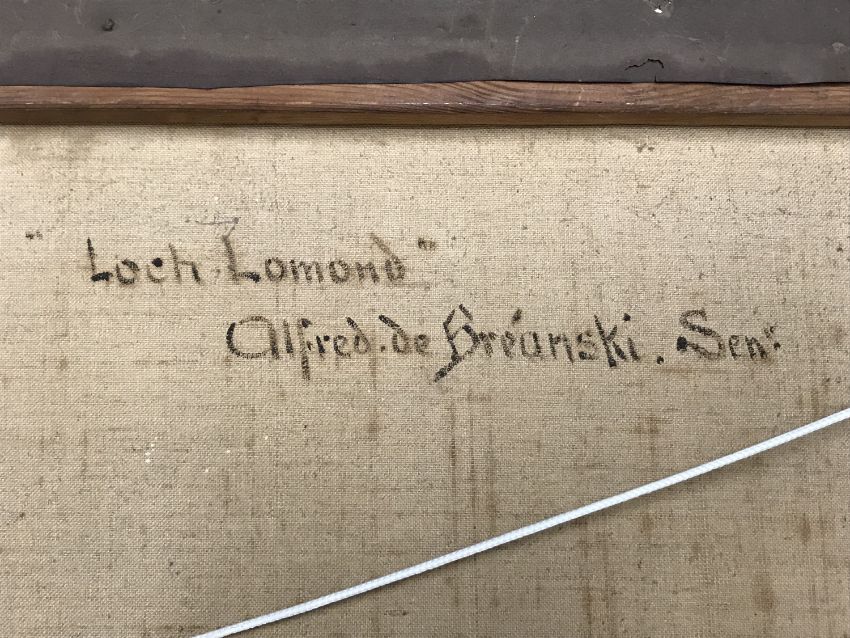 "Loch Lomond"
Alfred. de Bréanski. Senr